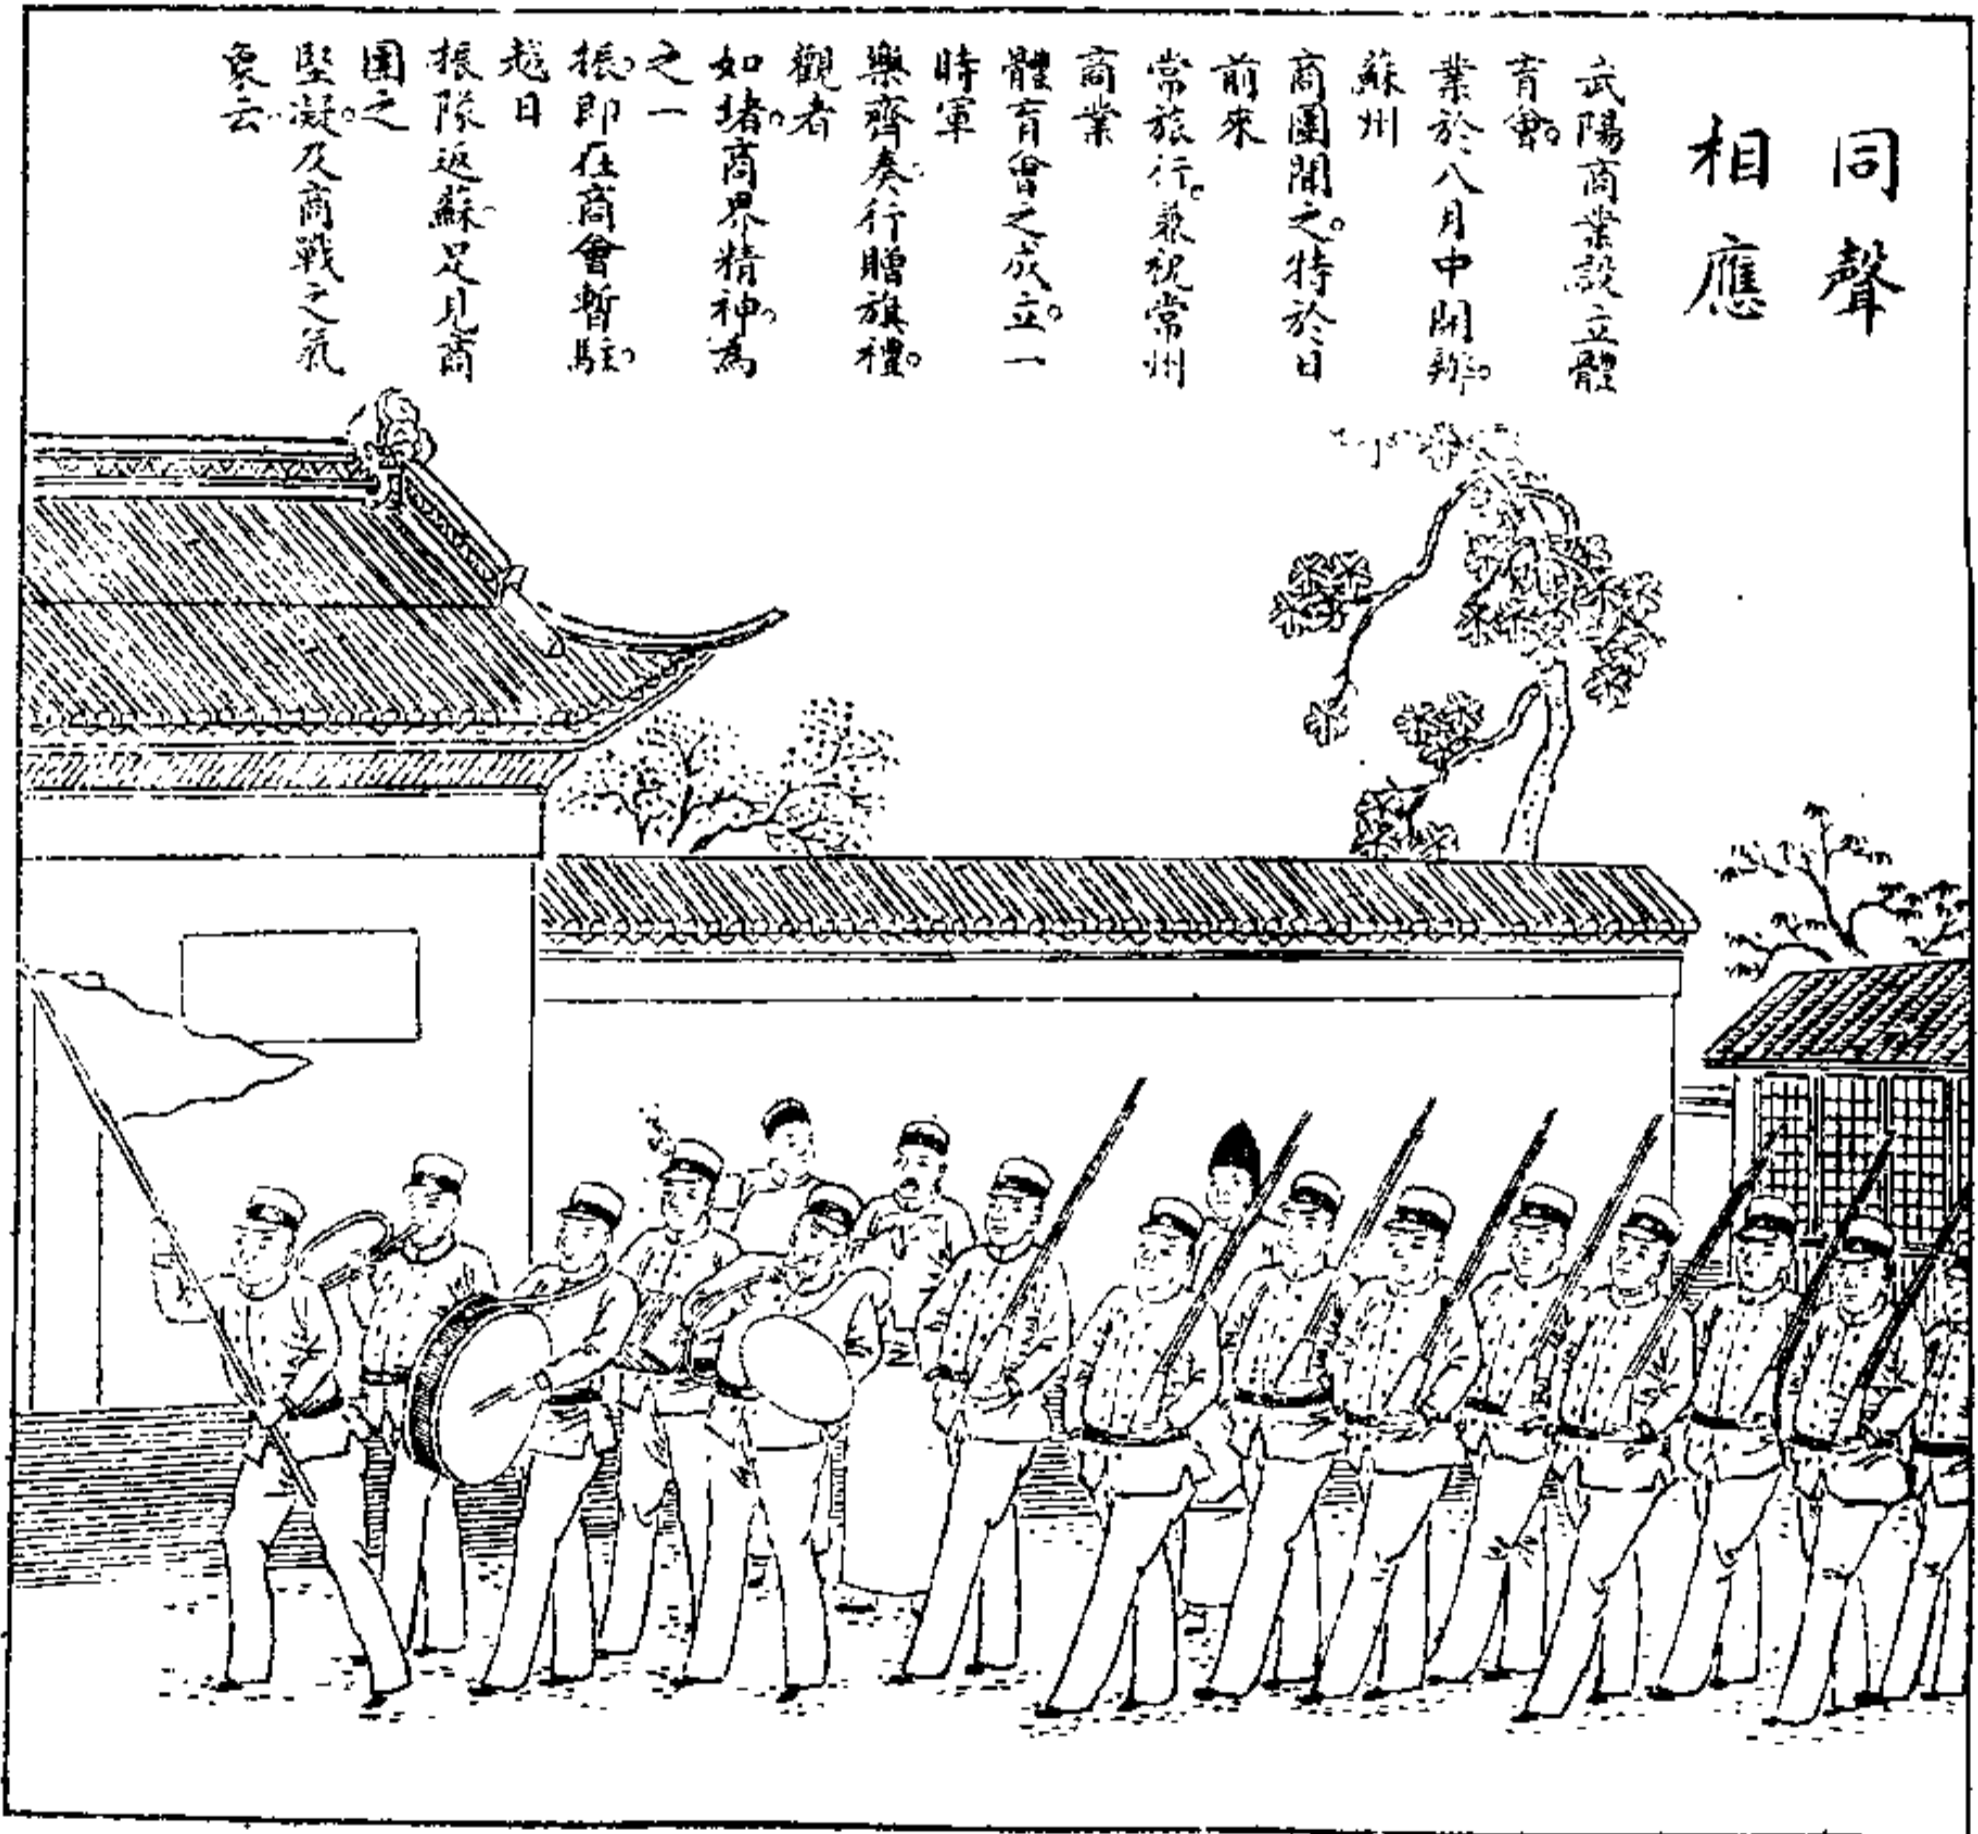 同聲
相應
武陽商業設立體
育會。
業於八月中開辦。
蘇州
商團聞之。特於日
前來
常旅行。兼祝常州
商業
體育會之成立。一
時軍
樂齊奏。行贈旗禮。
觀者
如堵。商界精神。為
之一
振。即在商會暫駐。
越日
振隊返蘇。足見商
團之
堅凝。及商戰之氣
象云。